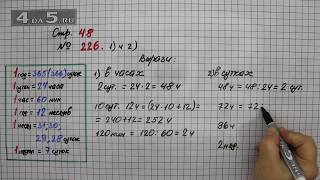 4DA5.RU
Стр. 48
№ 226. 1) и 2)
Вырази:
1 год = 365 (366) суток
1 сутки = 24 часа
1 час = 60 мин
1 год = 12 месяцев
1 месяц = 31, 30,
29, 28 суток
1 неделя = 7 суток
1) в часах
2 сут. = 24 · 2 = 48 ч
10 сут. 12 ч = (24 · 10 + 12) =
= 240 + 12 = 252 ч
120 мин = 120 : 60 = 2 ч
2) в сутках
48 ч = 48 : 24 = 2 сут.
72 ч = 72
96 ч
2 нед.